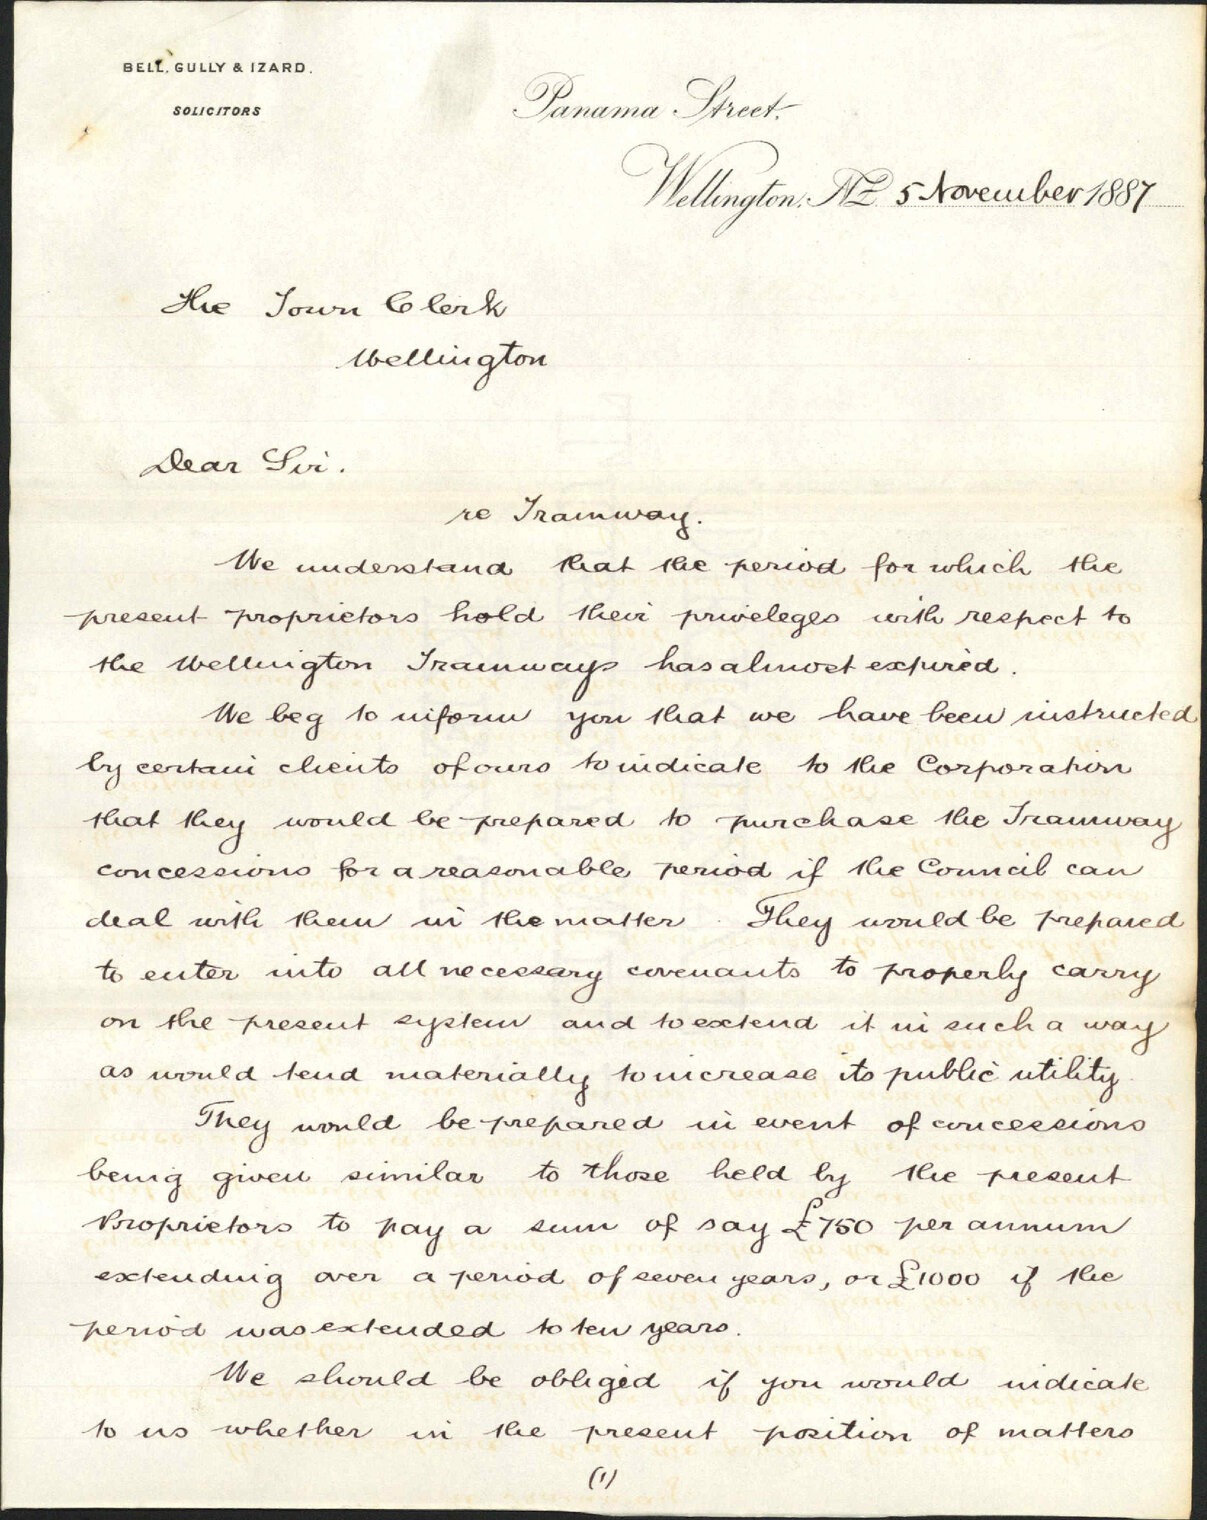 BELL, GULLY & IZARD.
SOLICITORS
Panama Street.
Wellington. NZ 5 November 1887
The Town Clerk
Wellington
Dear Sir.
re Tramway.
We understand that the period for which the
present proprietors hold their priveleges with respect to
the Wellington Tramways has almost expired.
We beg to inform you that we have been instructed
by certain clients of ours to indicate to the Corporation
that they would be prepared to purchase the Tramway
concessions for a reasonable period if the Council can
deal with them in the matter. They would be prepared
to enter into all necessary covenants to properly carry
on the present system and to extend it in such a way
as would tend materially to increase its public utility
They would be prepared in event of concessions
being given similar to those held by the present
Proprietors to pay a sum of say £750 per annum
extending over a period of seven years, or £1000 if the
period was extended to ten years.
We should be obliged if you would indicate
to us whether in the present position of matters
(1)